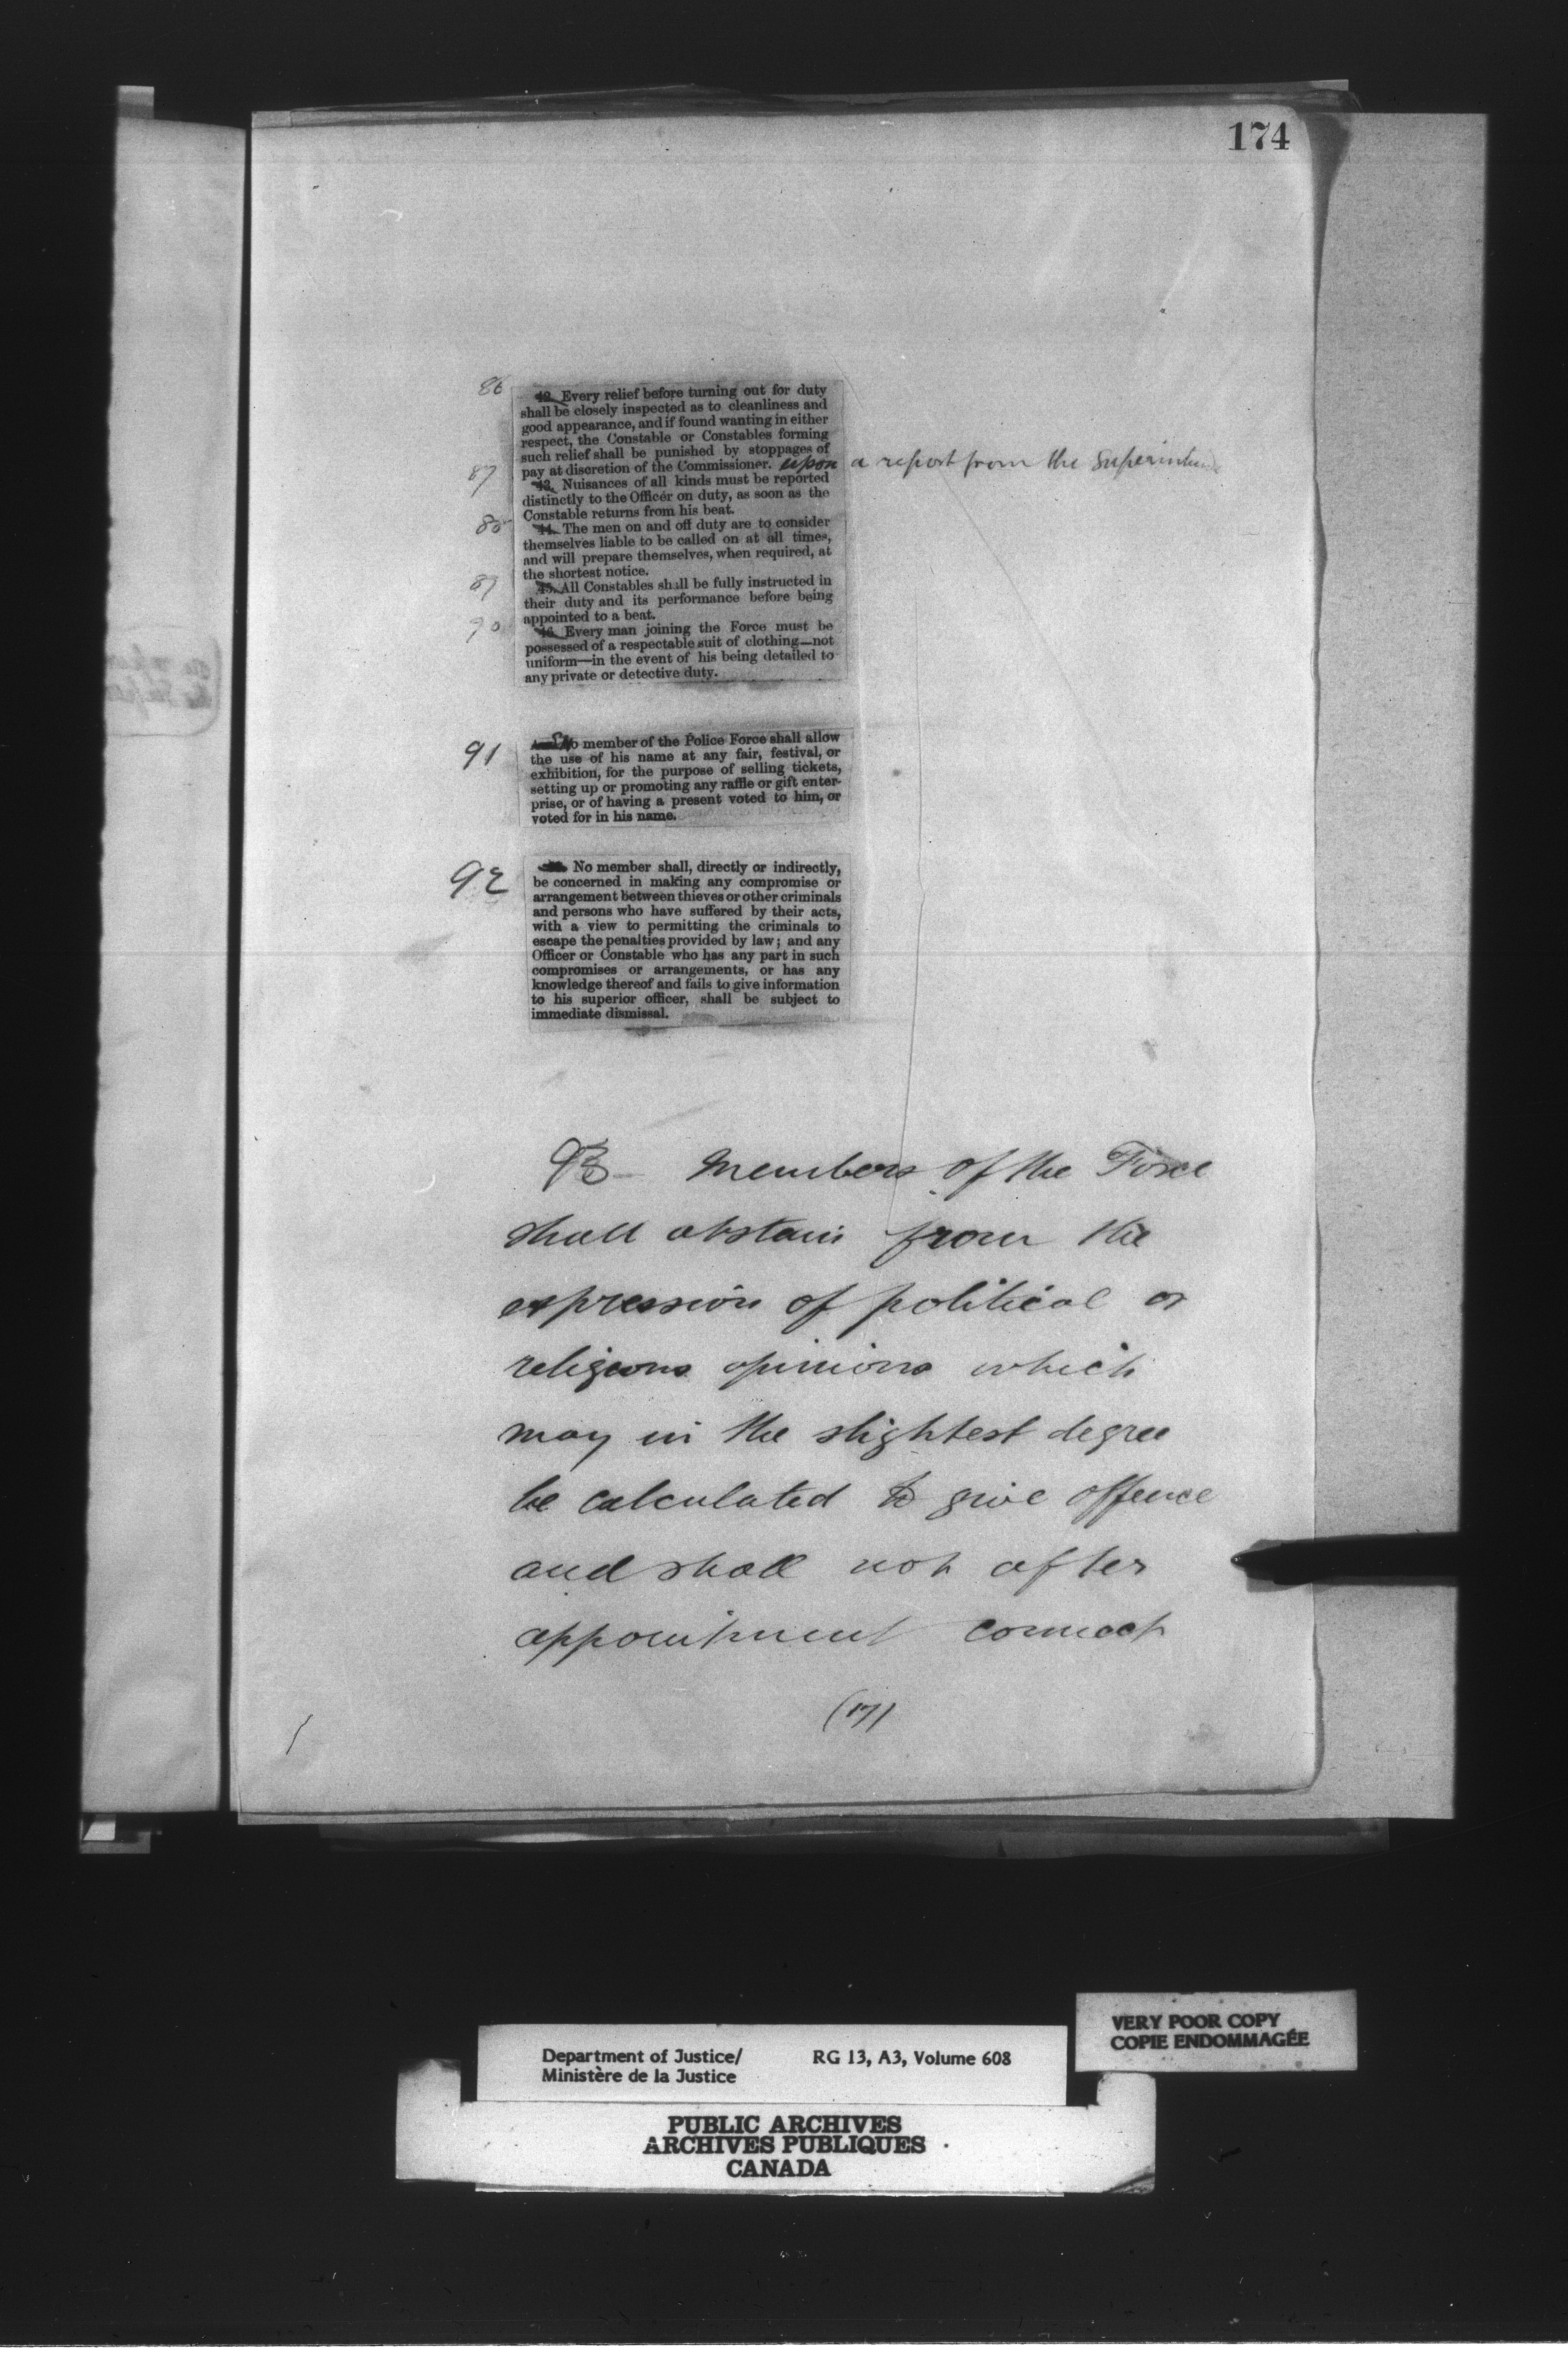 174
86 42. Every relief before turning out for duty
shall be closely inspected as to cleanliness and
good appearance, and if found wanting in either
respect, the Constable or Constables forming
such relief shall be punished by stoppages of
pay at discretion of the Commissioner. upon a report from the Superinten
87 43. Nuisances of all kinds must be reported
distinctly to the Officer on duty, as soon as the
Constable returns from his beat.
88 44. The men on and off duty are to consider
themselves liable to be called on at all times,
and will prepare themselves, when required, at
the shortest notice.
89 45. All Constables shall be fully instructed in
their duty and its performance before being
appointed to a beat.
90 46. Every man joining the Force must be
possessed of a respectable suit of clothing—not
uniform—in the event of his being detailed to
any private or detective duty.
91 No member of the Police Force shall allow
the use of his name at any fair, festival, or
exhibition, for the purpose of selling tickets,
setting up or promoting any raffle or gift enter-
prise, or of having a present voted to him, or
voted for in his name.
92 No member shall, directly or indirectly,
be concerned in making any compromise or
arrangement between thieves or other criminals
and persons who have suffered by their acts,
with a view to permitting the criminals to
escape the penalties provided by law; and any
Officer or Constable who has any part in such
compromises or arrangements, or has any
knowledge thereof and fails to give information
to his superior officer, shall be subject to
immediate dismissal.
93 Members of the Force
shall abstain from the
expression of political or
religious opinions which
may in the slightest degree
be calculated to give offence
and shall not after
appointment connect
(17)
VERY POOR COPY
COPIE ENDOMMAGÉE
Department of Justice/ RG 13, A3, Volume 608
Ministère de la Justice
PUBLIC ARCHIVES
ARCHIVES PUBLIQUES
CANADA